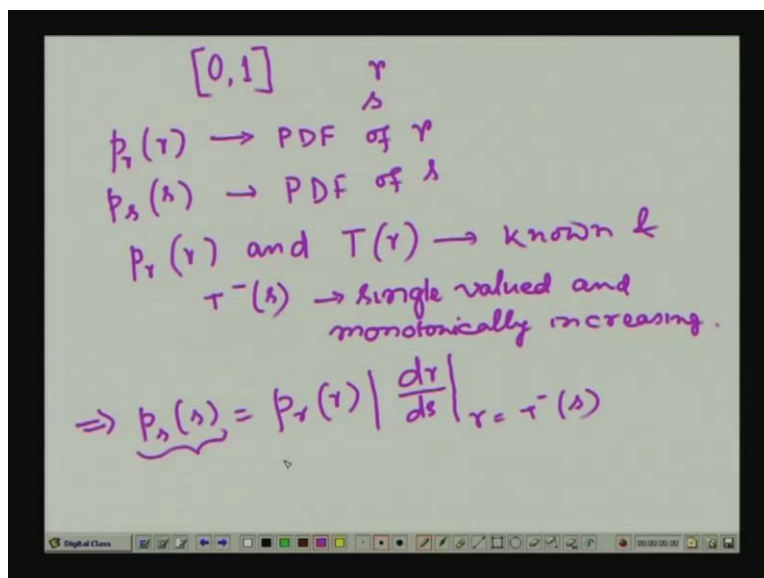 [0,1] r
s
p_r(r) → PDF of r
p_s(s) → PDF of s
p_r(r) and T(r) → known &
T⁻(s) → single valued and
monotonically increasing.
⇒ p_s(s) = p_r(r) |dr/ds|_{r = T⁻(s)}
Digital Class 00:00:00.00